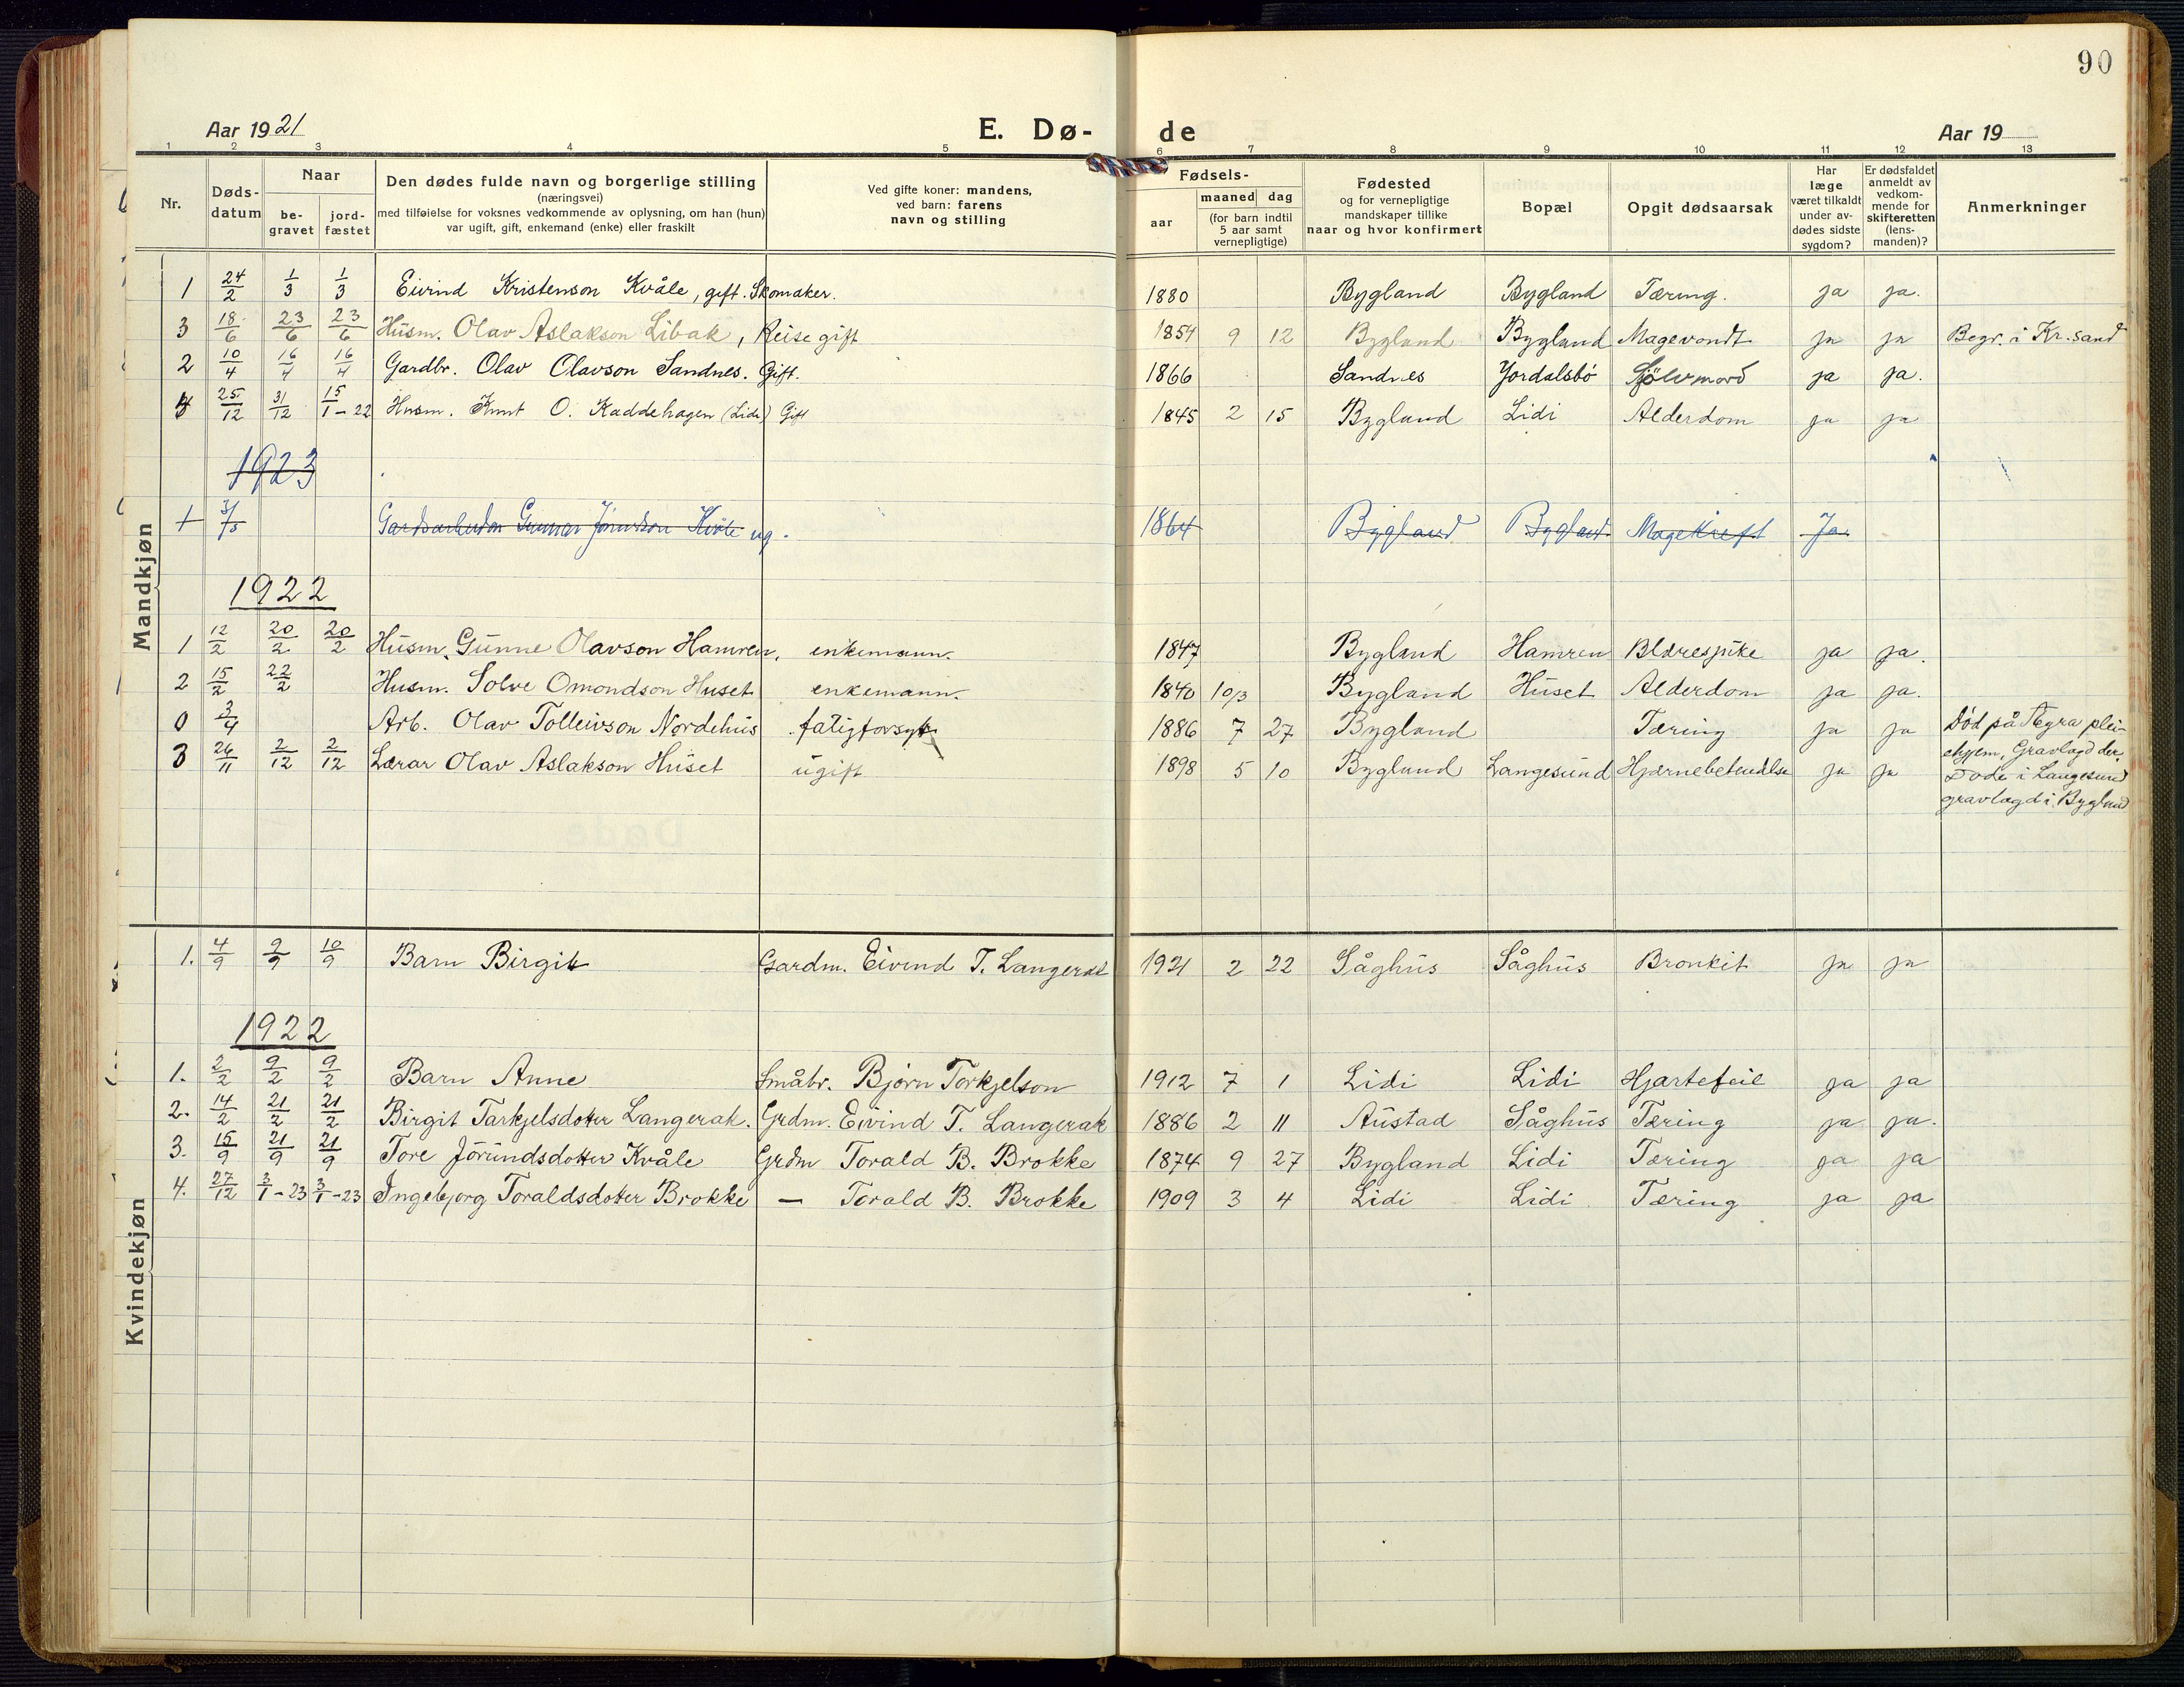 90
Aar 1921 E. Dø- de Aar 19
1 2 3 4 5 6 7 8 9 10 11 12 13
Nr. Døds-datum Naar be-gravet jord-fæstet Den dødes fulde navn og borgerlige stilling (næringsvei) med tilføielse for voksnes vedkommende av oplysning, om han (hun) var ugift, gift, enkemand (enke) eller fraskilt Ved gifte koner: mandens, ved barn: farens navn og stilling Fødsels- aar maaned dag (for barn indtil 5 aar samt vernepligtige) Fødested og for vernepligtige mandskaper tillike naar og hvor konfirmert Bopæl Opgit dødsaarsak Har læge været tilkaldt under av-dødes sidste sygdom? Er dødsfaldet anmeldt av vedkom-mende for skifteretten (lens-manden)? Anmerkninger
Mandkjøn
1 24/2 1/3 1/3 Eivind Kristenson Kvåle, gift. Skomaker. 1880 Bygland Bygland Tæring. ja ja.
3 18/6 23/6 23/6 Husm. Olav Aslakson Libak, Reise gift 1854 9 12 Bygland Bygland Magevondt ja ja Begr. i Kr.sand
2 10/4 16/4 16/4 Gardbr. Olav Olavson Sandnes. Gift. 1866 Sandnes Jordalsbö Sjölvmord ja ja.
4 25/12 31/12 15/1-22 Husm. Knut O. Kaddehagen (Lide) Gift 1845 2 15 Bygland Lidi Alderdom ja ja
1923
1 31/5 Gardsarbeider Gunnar Jörundson Kvåle ug. 1864 Bygland Bygland Magekreft Ja
1922
1 12/2 20/2 20/2 Husm. Gunne Olavson Hamren, enkemann. 1847 Bygland Hamren Blæresjuke ja ja.
2 15/2 22/2 Husm. Solve Omondson Huset enkemann. 1840 10/3 Bygland Huset Alderdom ja ja.
0 3/4 Arb. Olav Tolleivson Nordehus fatigforsyt 1886 7 27 Bygland Tæring ja ja Död på Ægra plei-
ehjem. Gravlagd der.
3 26/11 2/12 2/12 Lærar Olav Aslakson Huset ugift 1898 5 10 Bygland Langesund Hjærnebetendelse ja ja Döde i Langesund
gravlagd i Bygland
Kvindekjøn
1. 4/9 9/9 10/9 Barn Birgit Gardm. Eivind T. Langerak 1921 2 22 Såghus Såghus Bronkit ja ja
1922
1. 2/2 9/2 9/2 Barn Anne Småbr. Bjørn Torkjelson 1912 7 1 Lidi Lidi Hjartefeil ja ja
2. 14/2 21/2 21/2 Birgit Tarkjelsdotter Langerak. Grdm. Eivind T. Langerak 1886 2 11 Austad Såghus Tæring ja ja.
3. 15/9 21/9 21/9 Tore Jörundsdotter Kvåle Grdm Torald B. Brokke 1874 9 27 Bygland Lidi Tæring ja ja
4. 27/12 3/1-23 3/1-23 Ingebjorg Toraldsdotter Brokke — Torald B. Brokke 1909 3 4 Lidi Lidi Tæring ja ja